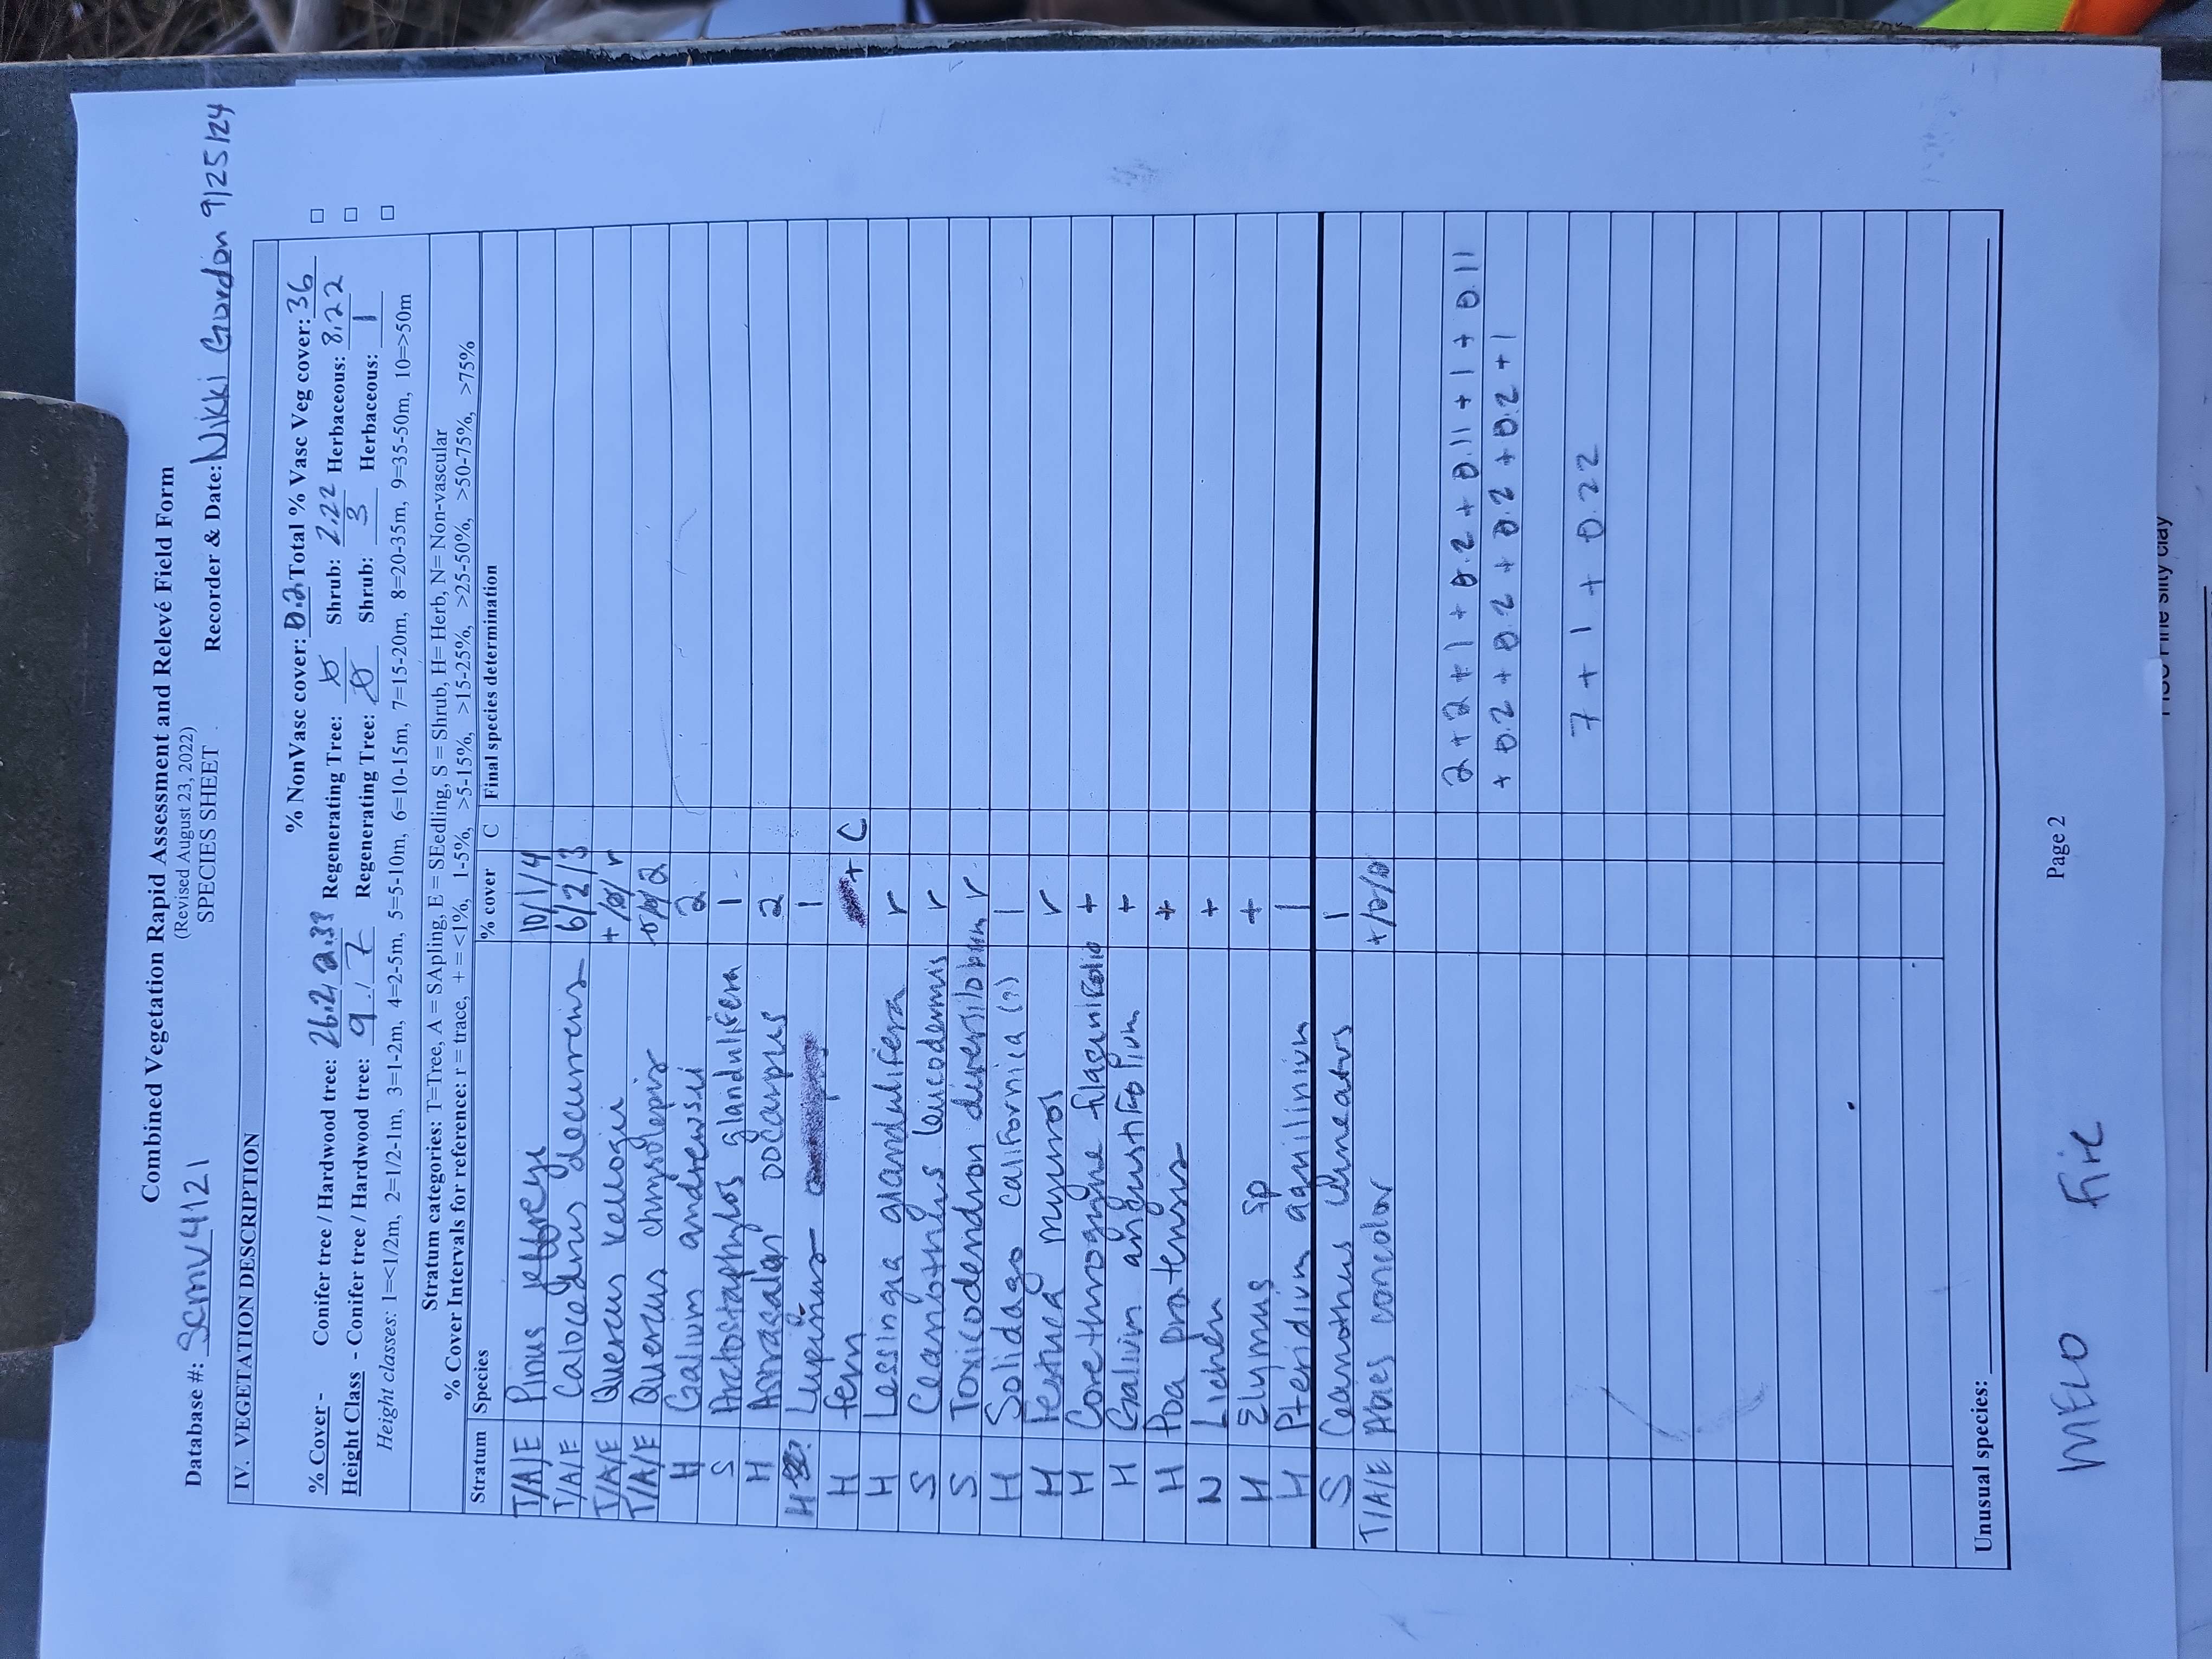 Combined Vegetation Rapid Assessment and Relevé Field Form
(Revised August 23, 2022)
SPECIES SHEET
Database #: SCMV4121 Recorder & Date: Nikki Gordon 9/25/24
IV. VEGETATION DESCRIPTION
% NonVasc cover: 0.2 Total % Vasc Veg cover: 36
% Cover - Conifer tree / Hardwood tree: 26.2 / 2.33 Regenerating Tree: 0 Shrub: 2.22 Herbaceous: 8.22
Height Class - Conifer tree / Hardwood tree: 9 / 7 Regenerating Tree: 0 Shrub: 3 Herbaceous: 1
Height classes: 1=<1/2m, 2=1/2-1m, 3=1-2m, 4=2-5m, 5=5-10m, 6=10-15m, 7=15-20m, 8=20-35m, 9=35-50m, 10=>50m
Stratum categories: T=Tree, A = SApling, E = SEedling, S = Shrub, H= Herb, N= Non-vascular
% Cover Intervals for reference: r = trace, + = <1%, 1-5%, >5-15%, >15-25%, >25-50%, >50-75%, >75%
Stratum Species % cover C Final species determination
T/A/E Pinus jeffreyi 10/1/4
T/A/E Calocedrus decurrens 6/2/3
T/A/E Quercus kelloggii +/0/r
T/A/E Quercus chrysolepis 2
H Galium andrewsii 2
S Arctostaphylos glandulifera 1
H Astragalus oocarpus 2
H Lupinus 1
H fern + C
H Lessingia glandulifera r
S Ceanothus leucodermis r
S Toxicodendron diversilobum r
H Solidago californica (?) 1
H festuca myuros r
H Corethrogyne filaginifolia +
H Galium angustifolium +
H Poa pratensis +
N Lichen +
H Elymus sp +
H Pteridium aquilinium 1
S Ceanothus cuneatus 1
T/A/E Abies concolor +/0/0
2 + 2 + 1 + 0.2 + 0.11 + 1 + 0.11
+ 0.2 + 0.2 + 0.2 + 0.2 + 1
7 + 1 + 0.22
Unusual species:
Page 2
MELO Fire
Fine silty clay